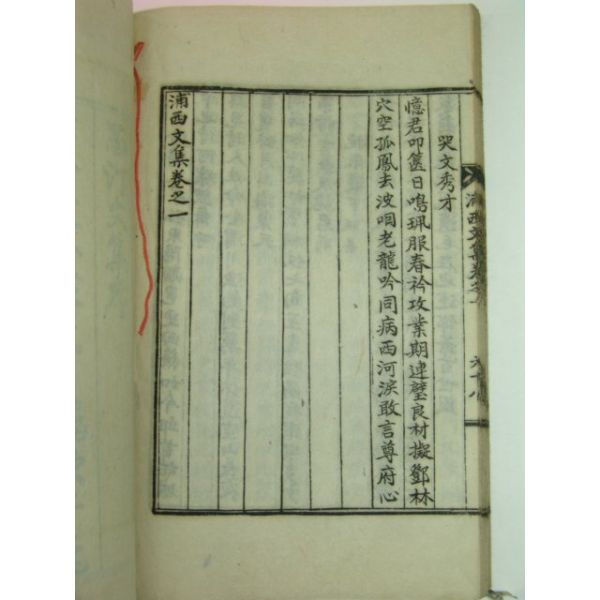 哭文秀才
憶君叩篋日鳴珮服春衿攻業期連璧良材擬鄧林
穴空孤鳳去波咽老龍吟同病西河淚敢言尊府心
浦西文集卷之一
浦西文集卷之一
六十八